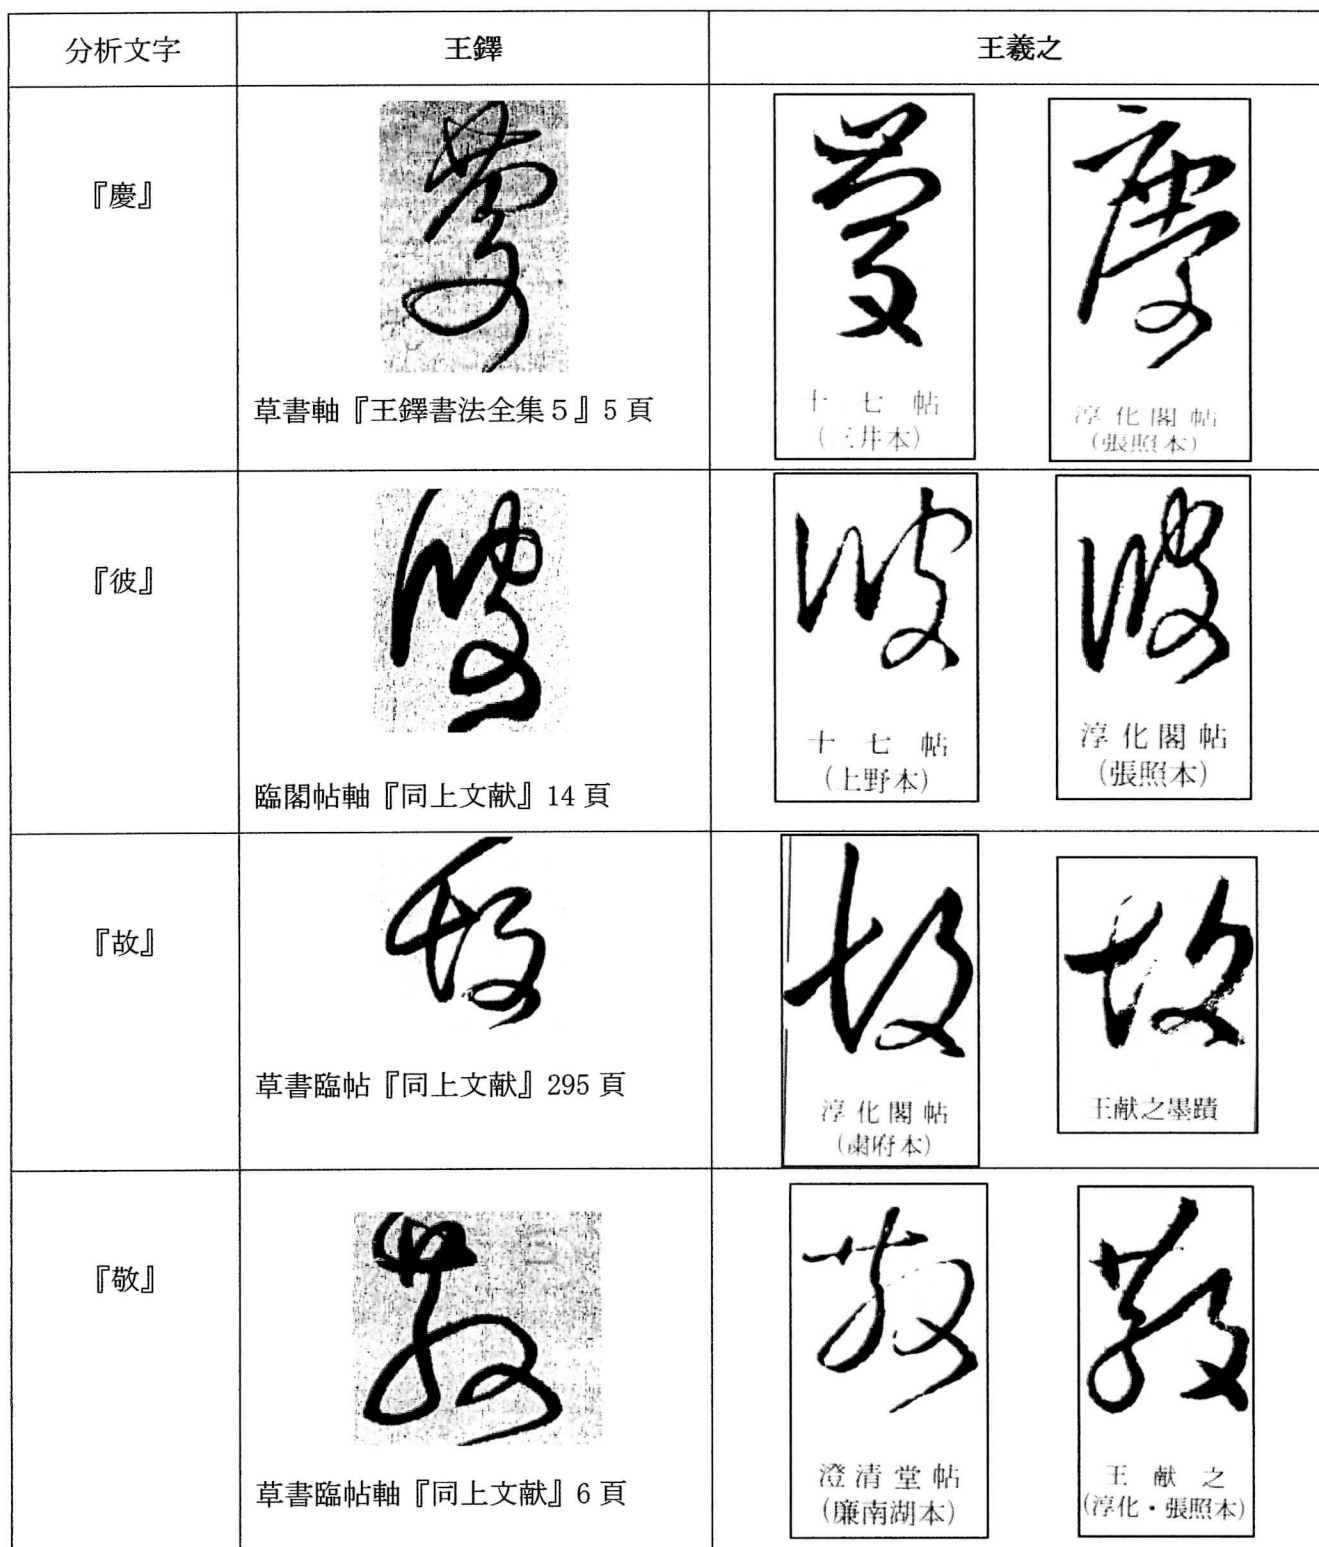 分析文字
王鐸
王羲之
『慶』
慶
草書軸『王鐸書法全集５』5 頁
慶
十七帖
(三井本)
慶
淳化閣帖
(張照本)
『彼』
彼
臨閣帖軸『同上文献』14 頁
彼
十七帖
(上野本)
彼
淳化閣帖
(張照本)
『故』
故
草書臨帖『同上文献』295 頁
故
淳化閣帖
(粛府本)
故
王献之墨蹟
『敬』
敬
草書臨帖軸『同上文献』6 頁
敬
澄清堂帖
(廉南湖本)
敬
王献之
(淳化・張照本)